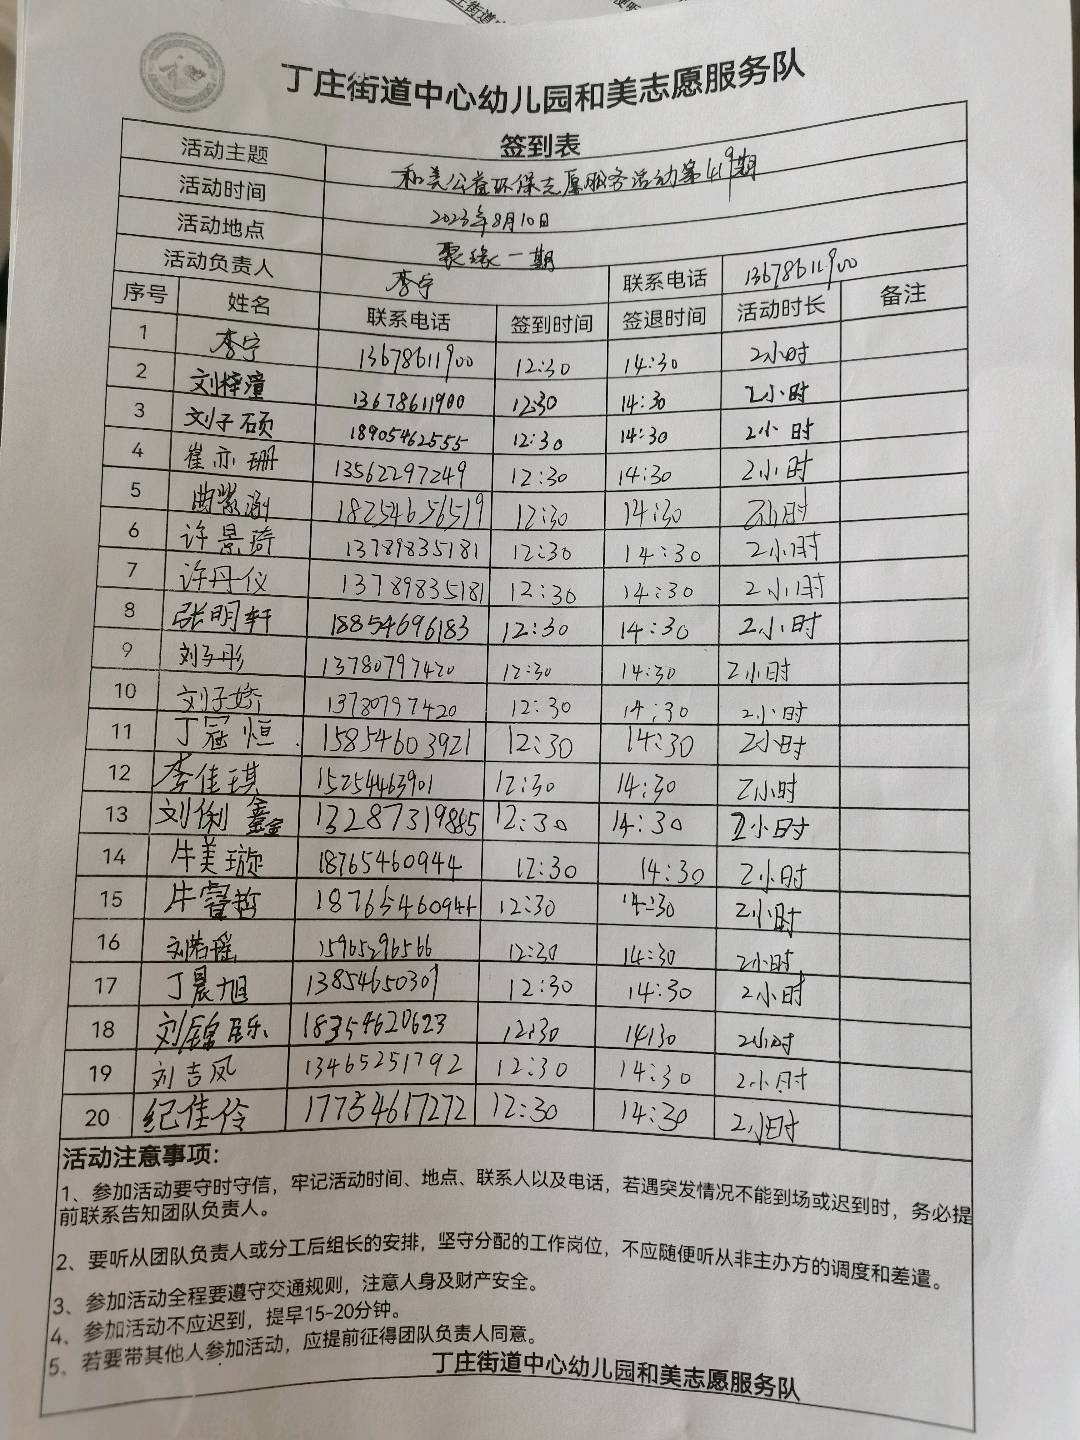 丁庄街道中心幼儿园和美志愿服务队
签到表
活动主题 和美公益环保志愿服务活动第419期
活动时间 2023年8月10日
活动地点 聚缘一期
活动负责人 李宁 联系电话 13678611900
序号 姓名 联系电话 签到时间 签退时间 活动时长 备注
1 李宁 13678611900 12:30 14:30 2小时
2 刘梓潼 13678611900 12:30 14:30 2小时
3 刘子硕 18905462555 12:30 14:30 2小时
4 崔亦珊 13562297249 12:30 14:30 2小时
5 18254656519 12:30 14:30 2小时
6 许景琦 13789835181 12:30 14:30 2小时
7 许丹仪 13789835181 12:30 14:30 2小时
8 张明轩 18854696183 12:30 14:30 2小时
9 刘子彤 13780797420 12:30 14:30 2小时
10 刘子娇 13780797420 12:30 14:30 2小时
11 丁冠恒 15854603921 12:30 14:30 2小时
12 李佳琪 15254463901 12:30 14:30 2小时
13 刘俐鑫 12:30 14:30 2小时
14 牛美璇 18765460944 12:30 14:30 2小时
15 牛睿哲 18765460944 12:30 14:30 2小时
16 刘若瑶 15965296566 12:30 14:30 2小时
17 丁晨旭 13854650307 12:30 14:30 2小时
18 18354620623 12:30 14:30 2小时
19 刘吉凤 13465251792 12:30 14:30 2小时
20 纪佳伶 17754617272 12:30 14:30 2小时
活动注意事项:
1、参加活动要守时守信，牢记活动时间、地点、联系人以及电话，若遇突发情况不能到场或迟到时，务必提
前联系告知团队负责人。
2、要听从团队负责人或分工后组长的安排，坚守分配的工作岗位，不应随便听从非主办方的调度和差遣。
3、参加活动全程要遵守交通规则，注意人身及财产安全。
4、参加活动不应迟到，提早15-20分钟。
5、若要带其他人参加活动，应提前征得团队负责人同意。
丁庄街道中心幼儿园和美志愿服务队